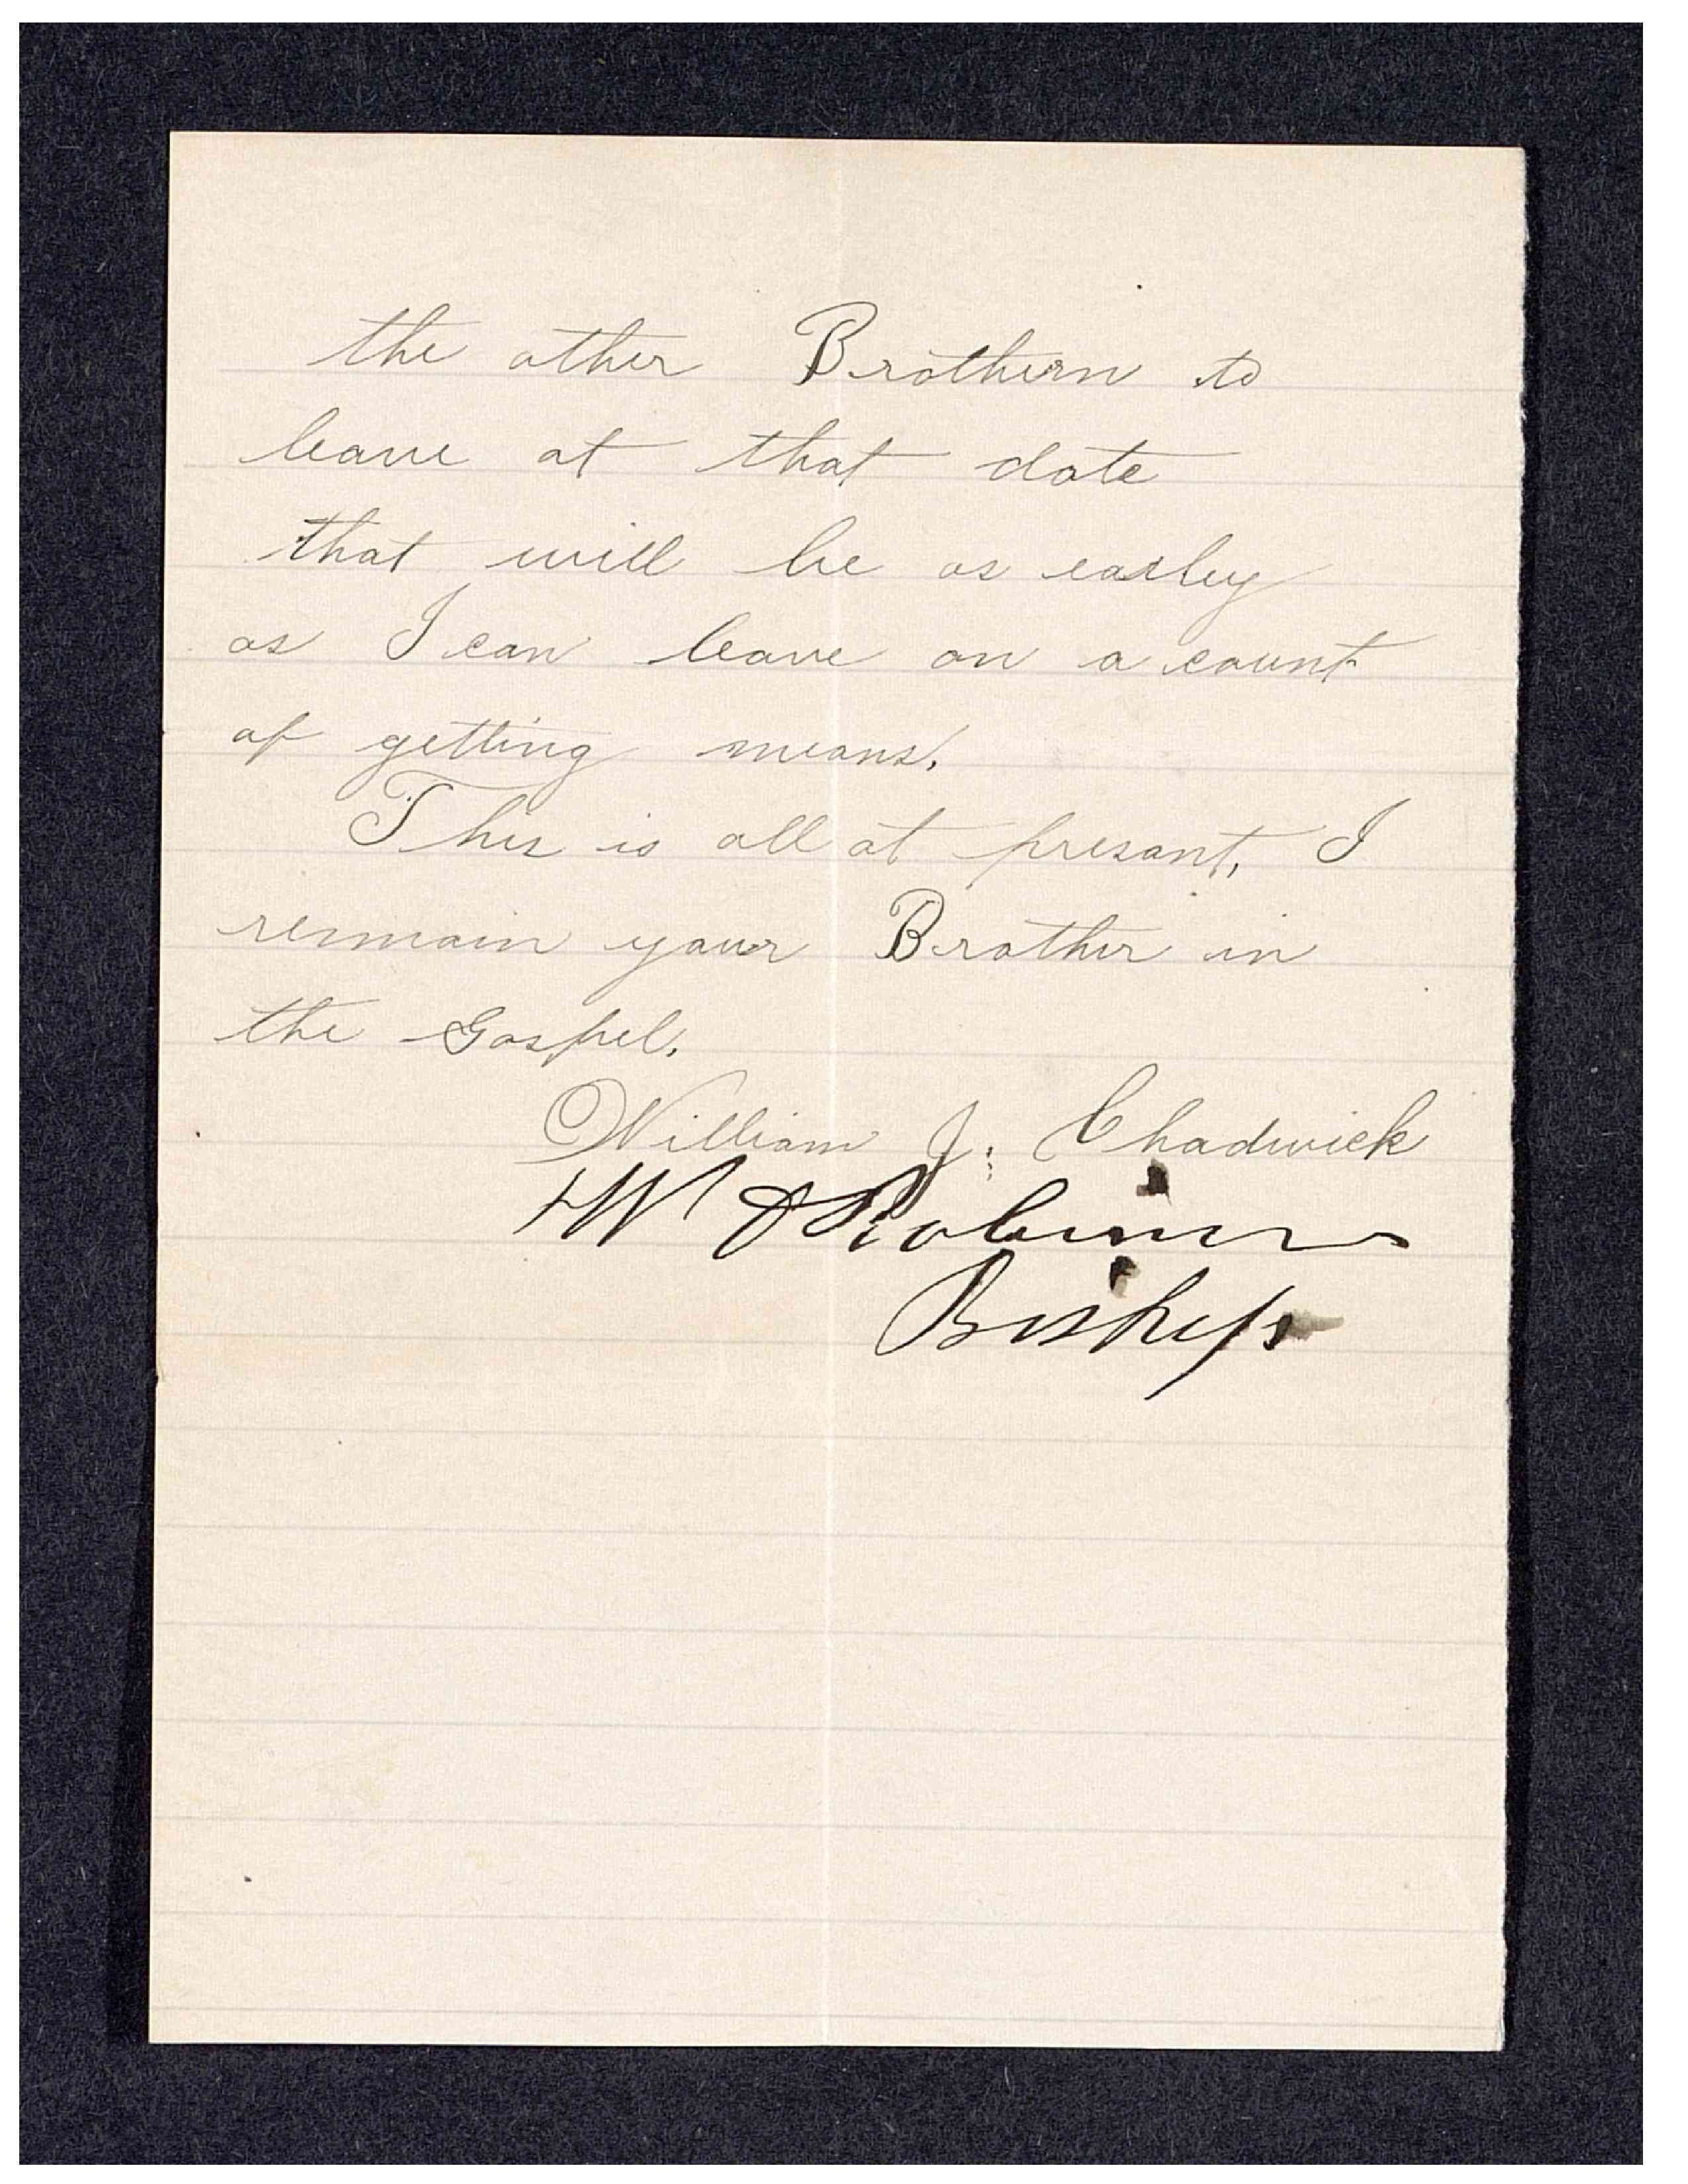 the other Brothern to
leave at that date
that will be as earley
as I can leave on a count
of getting means.
This is all at presant, I
remain your Brother in
the Gospel.
William J. Chadwick
W
Bishop